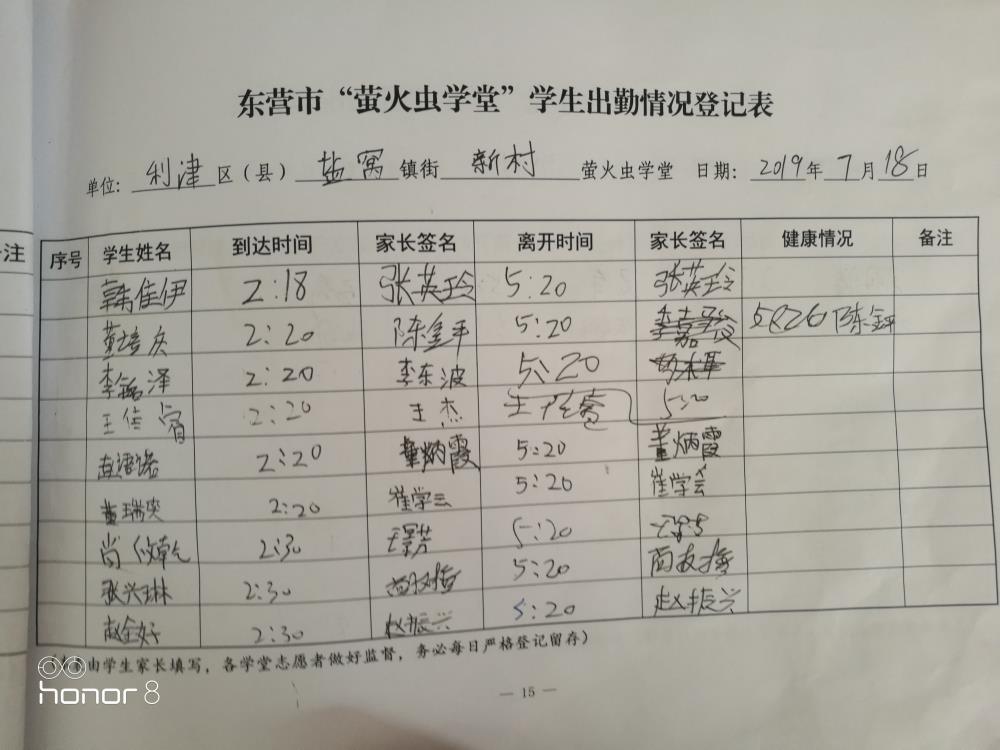 东营市“萤火虫学堂”学生出勤情况登记表
单位: 利津 区（县） 盐窝 镇街 新村 萤火虫学堂 日期: 2019 年 7 月 18 日
注
序号 学生姓名 到达时间 家长签名 离开时间 家长签名 健康情况 备注
韩佳伊 2:18 张英玲 5:20 张英玲
2:20 陈金平 5:20 5:20 陈金平
李 泽 2:20 李东波 5:20
王佳 2:20 王杰 5:20
2:20 董炳霞 5:20 董炳霞
董瑞奕 2:20 崔学云 5:20 崔学会
尚 2:30 5:20
张兴琳 2:30 5:20
赵 好 2:30 赵振兴 5:20 赵振兴
由学生家长填写，各学堂志愿者做好监督，务必每日严格登记留存）
— 15 —
honor 8